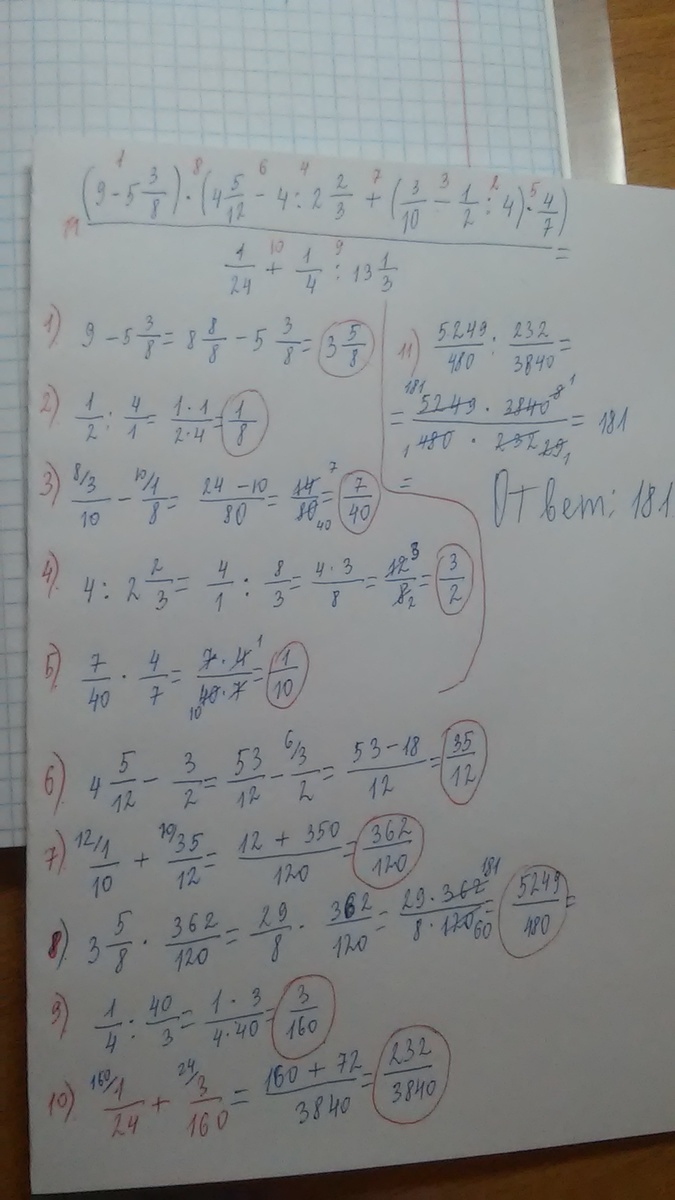 (9 - 5 3/8) · (4 5/12 - 4 : 2 2/3 + (3/10 - 1/2 : 4) · 4/7)
1 8 6 4 7 3 2 5
11
=
1/24 + 1/4 : 13 1/3
10 9
1) 9 - 5 3/8 = 8 8/8 - 5 3/8 = 3 5/8
2) 1/2 : 4/1 = 1·1/2·4 = 1/8
3) 8/ 3/10 - 10/ 1/8 = 24-10/80 = 14/80 7 40 = 7/40
4) 4 : 2 2/3 = 4/1 : 8/3 = 4·3/8 = 12/8 3 2 = 3/2
5) 7/40 · 4/7 = 7·4/40·7 1 10 = 1/10
6) 4 5/12 - 3/2 = 53/12 - 6/ 3/2 = 53-18/12 = 35/12
7) 12/ 1/10 + 10/ 35/12 = 12 + 350/120 = 362/120
8) 3 5/8 · 362/120 = 29/8 · 362/120 = 29·362/8·120 181 60 = 5249/480 =
9) 1/4 : 40/3 = 1·3/4·40 = 3/160
10) 160/ 1/24 + 24/ 3/160 = 160 + 72/3840 = 232/3840
11) 5249/480 : 232/3840 =
= 5249 · 3840/480 · 232 181 8 1 1 29 1 = 181
=
Ответ: 181